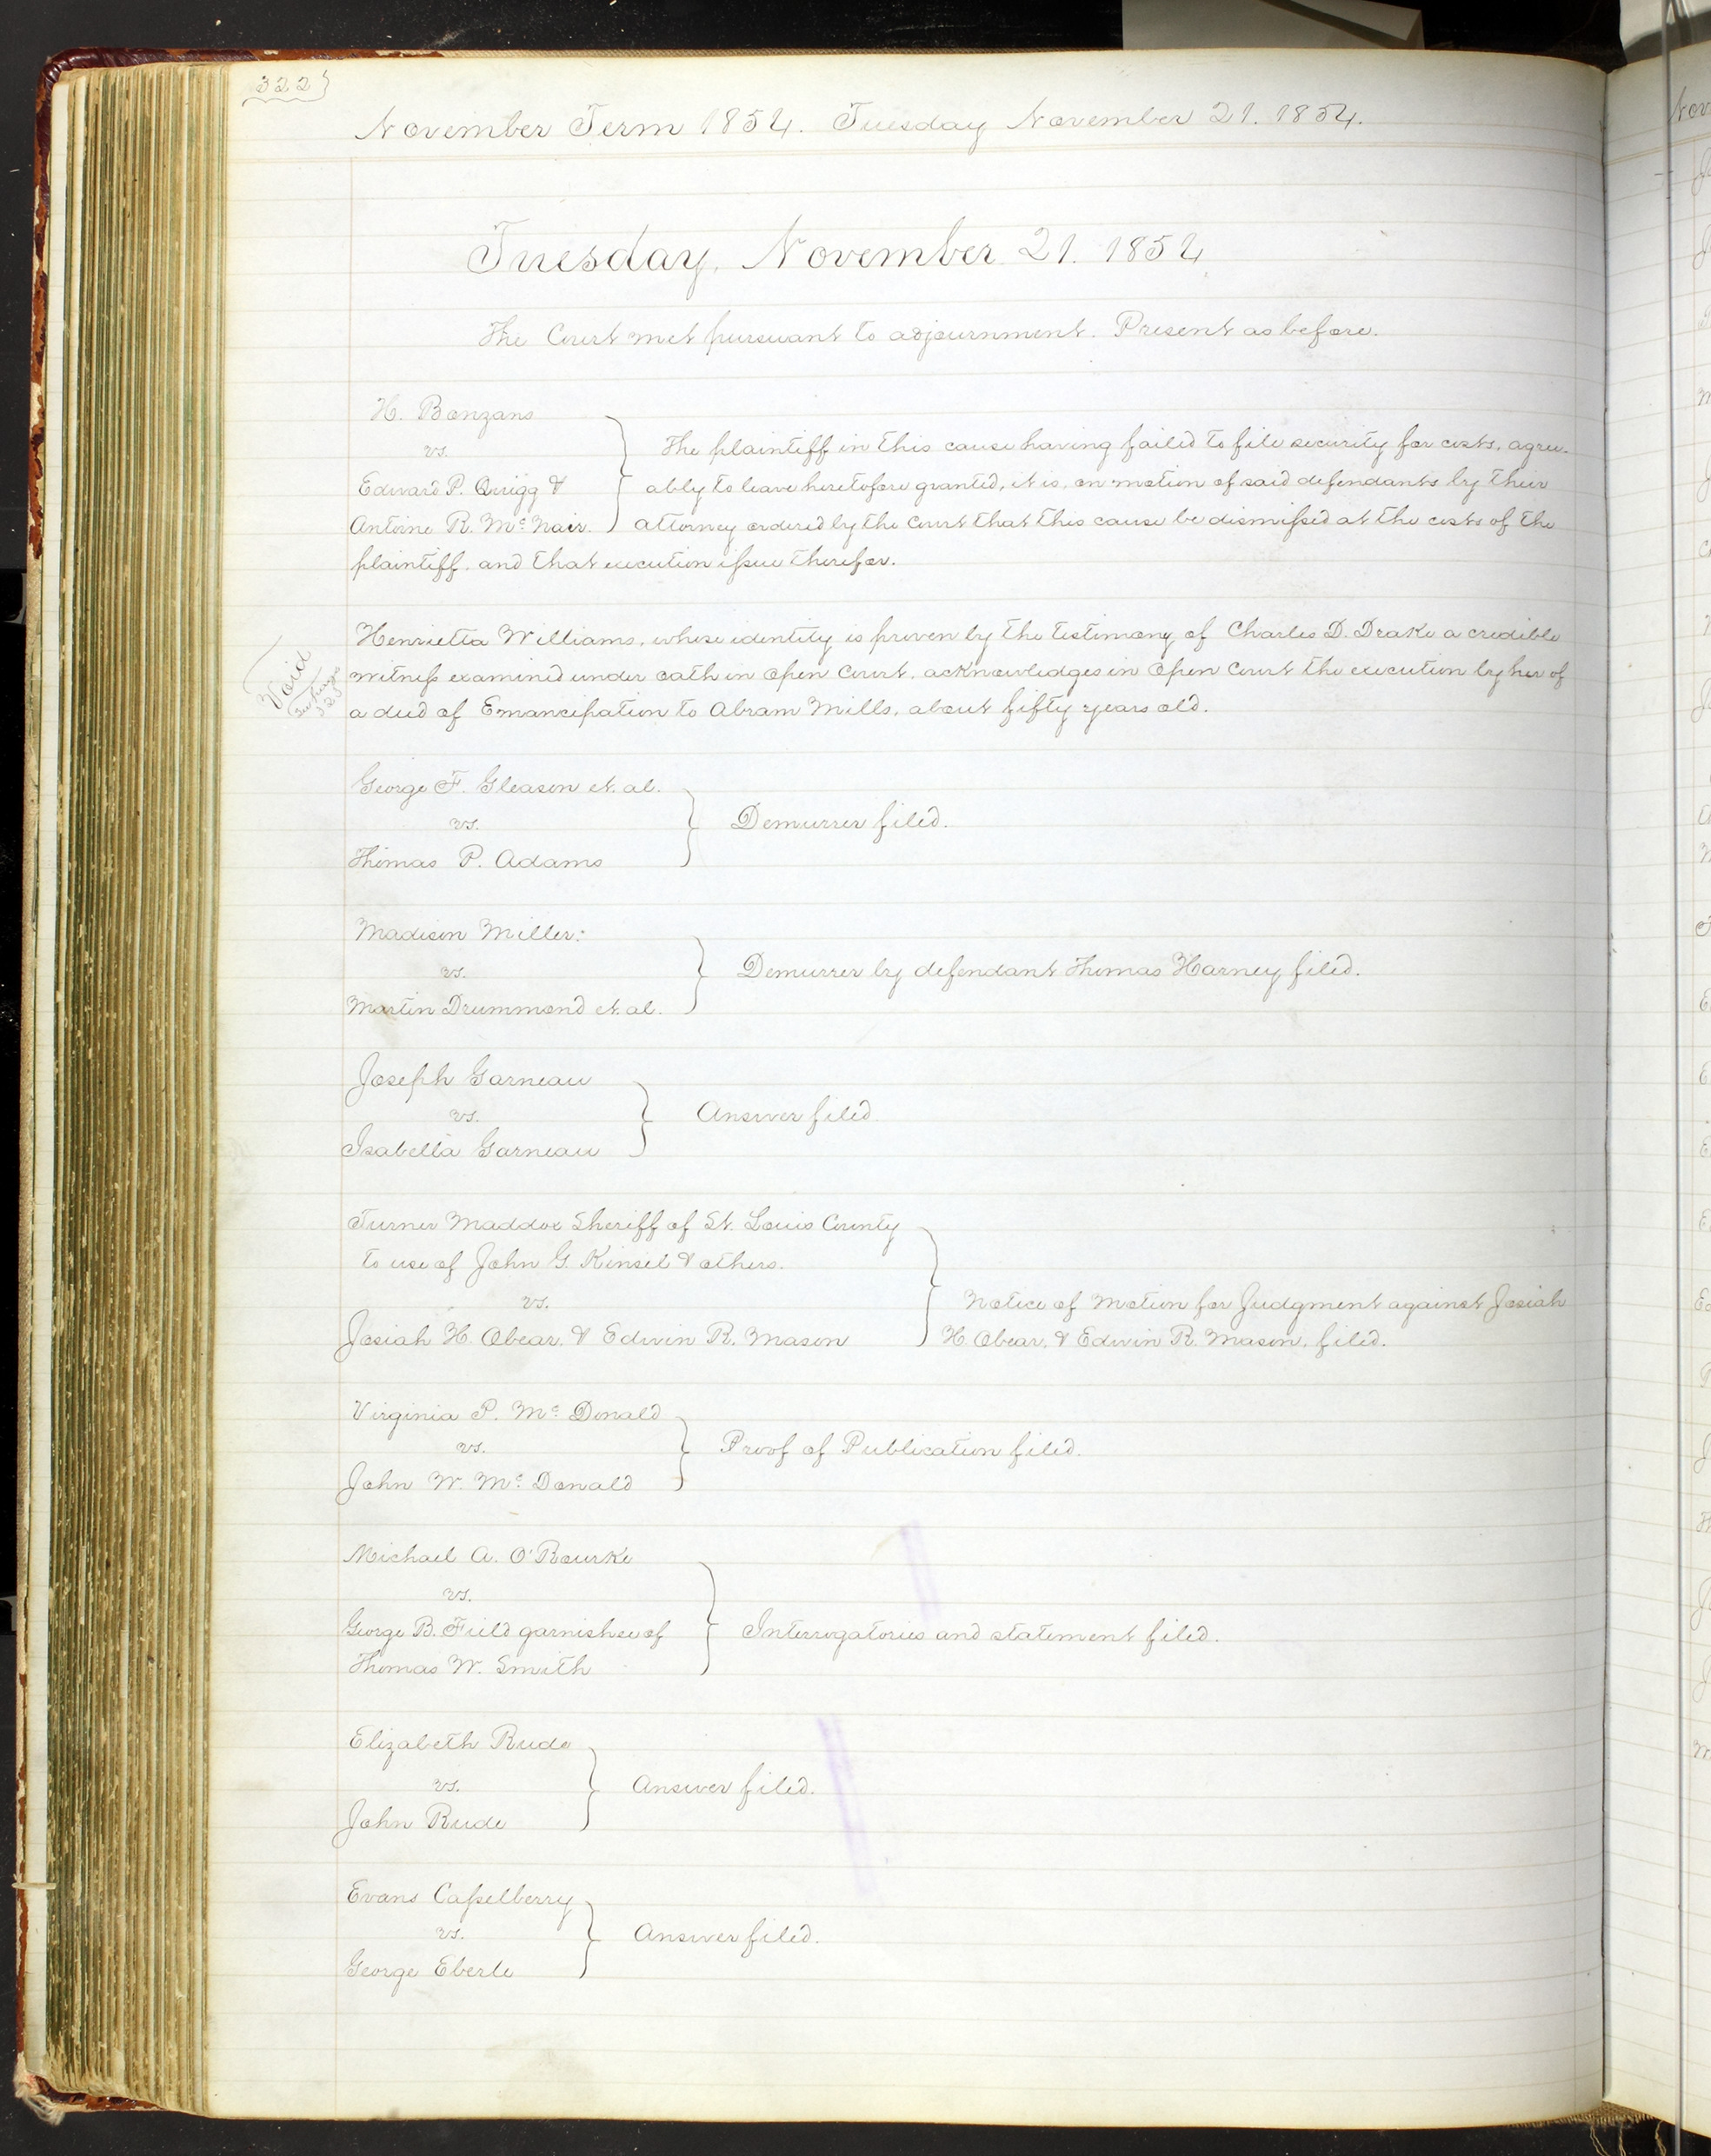 322
November Term 1854. Tuesday November 21. 1854.
Tuesday, November 21. 1854
The Court met pursuant to adjournment. Present as before.
H. Bonzans
vs.
Edward P. Quigg &
Antoine R. McNair.
The plaintiff in this cause having failed to file security for costs, agree-
ably to leave heretofore granted, it is, on motion of said defendants by their
attorney ordered by the Court that this cause be dismissed at the costs of the
plaintiff, and that execution issue therefor.
Void
See page
Henrietta Williams, whose identity is proven by the testimony of Charles D. Drake a credible
witness examined under oath in open Court, acknowledges in open Court the execution by her of
a deed of Emancipation to Abram Mills, about fifty years old.
George F. Gleason et. al.
vs.
Thomas P. Adams
Demurrer filed.
Madison Miller:
vs.
Martin Drummond et. al.
Demurrer by defendant Thomas Harney filed.
Joseph Garneau
vs.
Isabella Garneau
Answer filed.
Turner Maddox Sheriff of St. Louis County
to use of John G. Kinsel & others.
vs.
Josiah H. Obear, & Edwin R. Mason
Notice of Motion for Judgment against Josiah
H. Obear, & Edwin R. Mason, filed.
Virginia P. Mc Donald
vs.
John W. Mc Donald
Proof of Publication filed.
Michael A. O'Rourke
vs.
George B. Field garnishee of
Thomas W. Smith
Interrogatories and statement filed.
Elizabeth Rude
vs.
John Rude
Answer filed.
Evans Casselberry
vs.
George Eberle
Answer filed.